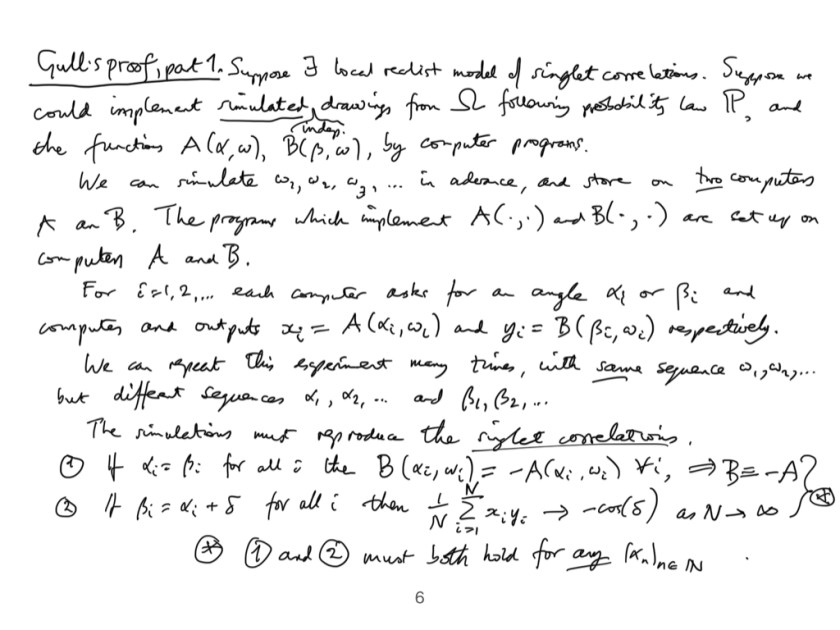 Gull's proof, part 1. Suppose ∃ local realist model of singlet correlations. Suppose we
could implement simulated, indep. drawings from Ω following probability law ℙ, and
the functions A(α,ω), B(β,ω), by computer programs.
We can simulate ω₁, ω₂, ω₃, ... in advance, and store on two computers
A an B. The programs which implement A(·,·) and B(·,·) are set up on
computers A and B.
For i=1,2,... each computer asks for an angle αᵢ or βᵢ and
computes and outputs xᵢ = A(αᵢ,ωᵢ) and yᵢ = B(βᵢ,ωᵢ) respectively.
We can repeat this experiment many times, with same sequence ω₁,ω₂,...
but different sequences α₁, α₂, ... and β₁, β₂, ...
The simulations must reproduce the singlet correlations.
① If αᵢ = βᵢ for all i the B(αᵢ,ωᵢ) = -A(αᵢ,ωᵢ) ∀i, ⇒ B ≡ -A
② If βᵢ = αᵢ + δ for all i then 1/N Σᵢ₌₁ᴺ xᵢyᵢ → -cos(δ) as N → ∞ } ⊛
⊛ ① and ② must both hold for any (αₙ)ₙ∈ℕ
6